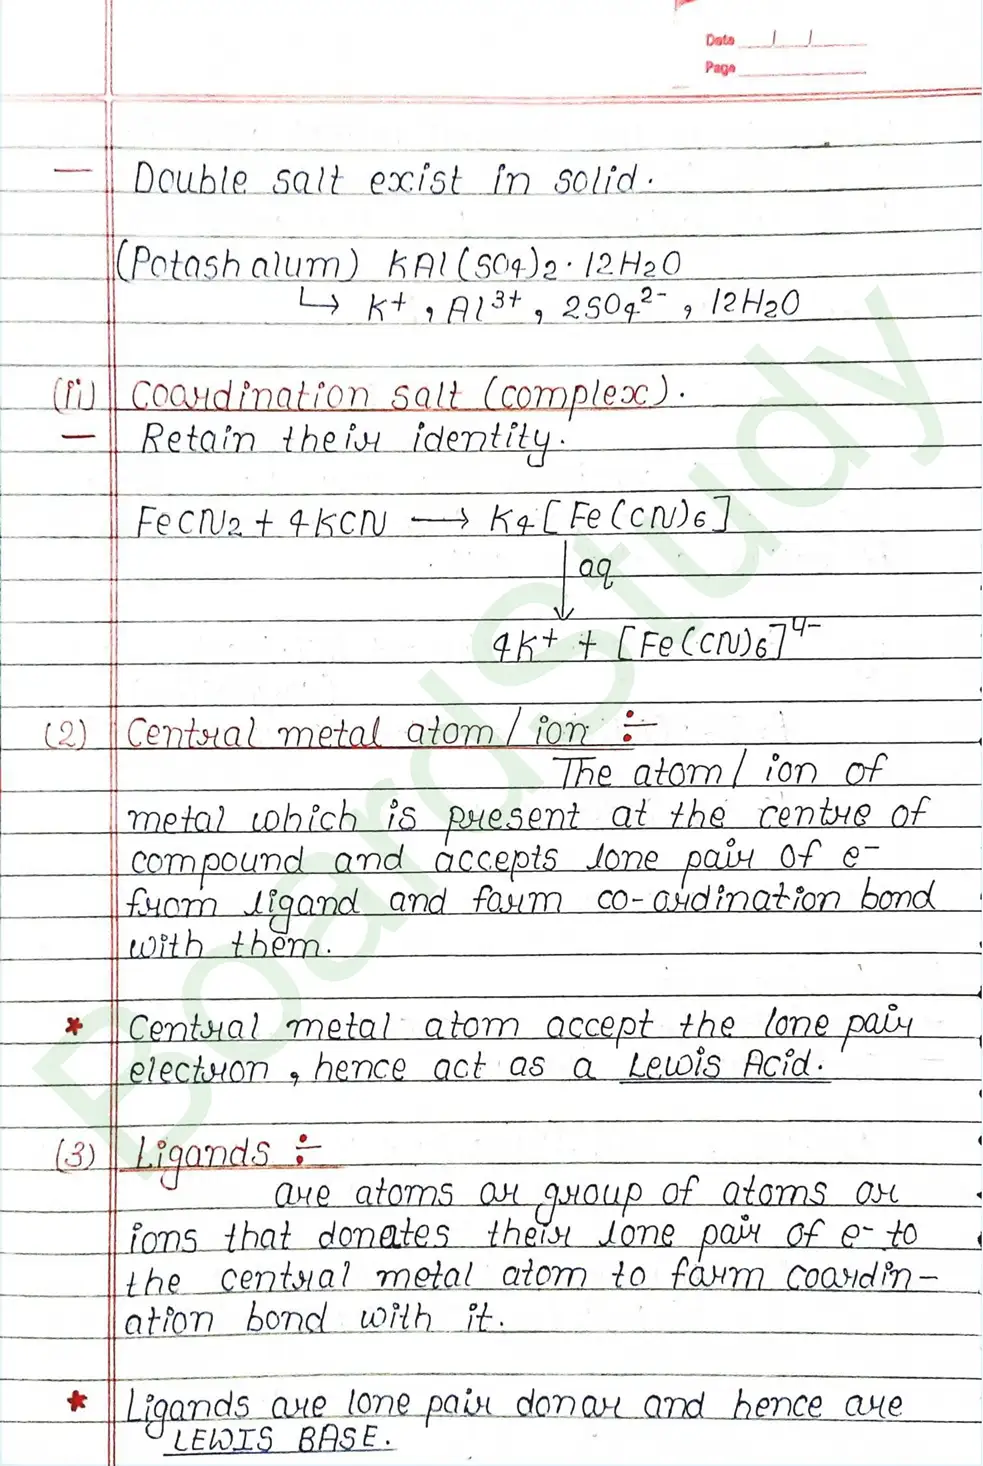 Date / /
Page
— Double salt exist in solid.
(Potash alum) KAl(SO4)2·12H2O
↳ K+, Al3+, 2SO4 2-, 12H2O
(ii) Coordination salt (complex).
— Retain their identity.
FeCN2 + 4KCN ⟶ K4[Fe(CN)6]
↓ aq
4K+ + [Fe(CN)6]4-
(2) Central metal atom/ion ÷
The atom/ion of
metal which is present at the centre of
compound and accepts lone pair of e-
from ligand and form co-ordination bond
with them.
* Central metal atom accept the lone pair
electron, hence act as a Lewis Acid.
(3) Ligands ÷
are atoms or group of atoms or
ions that donates their lone pair of e- to
the central metal atom to form coordin-
ation bond with it.
* Ligands are lone pair donar and hence are
LEWIS BASE.
BoardStudy